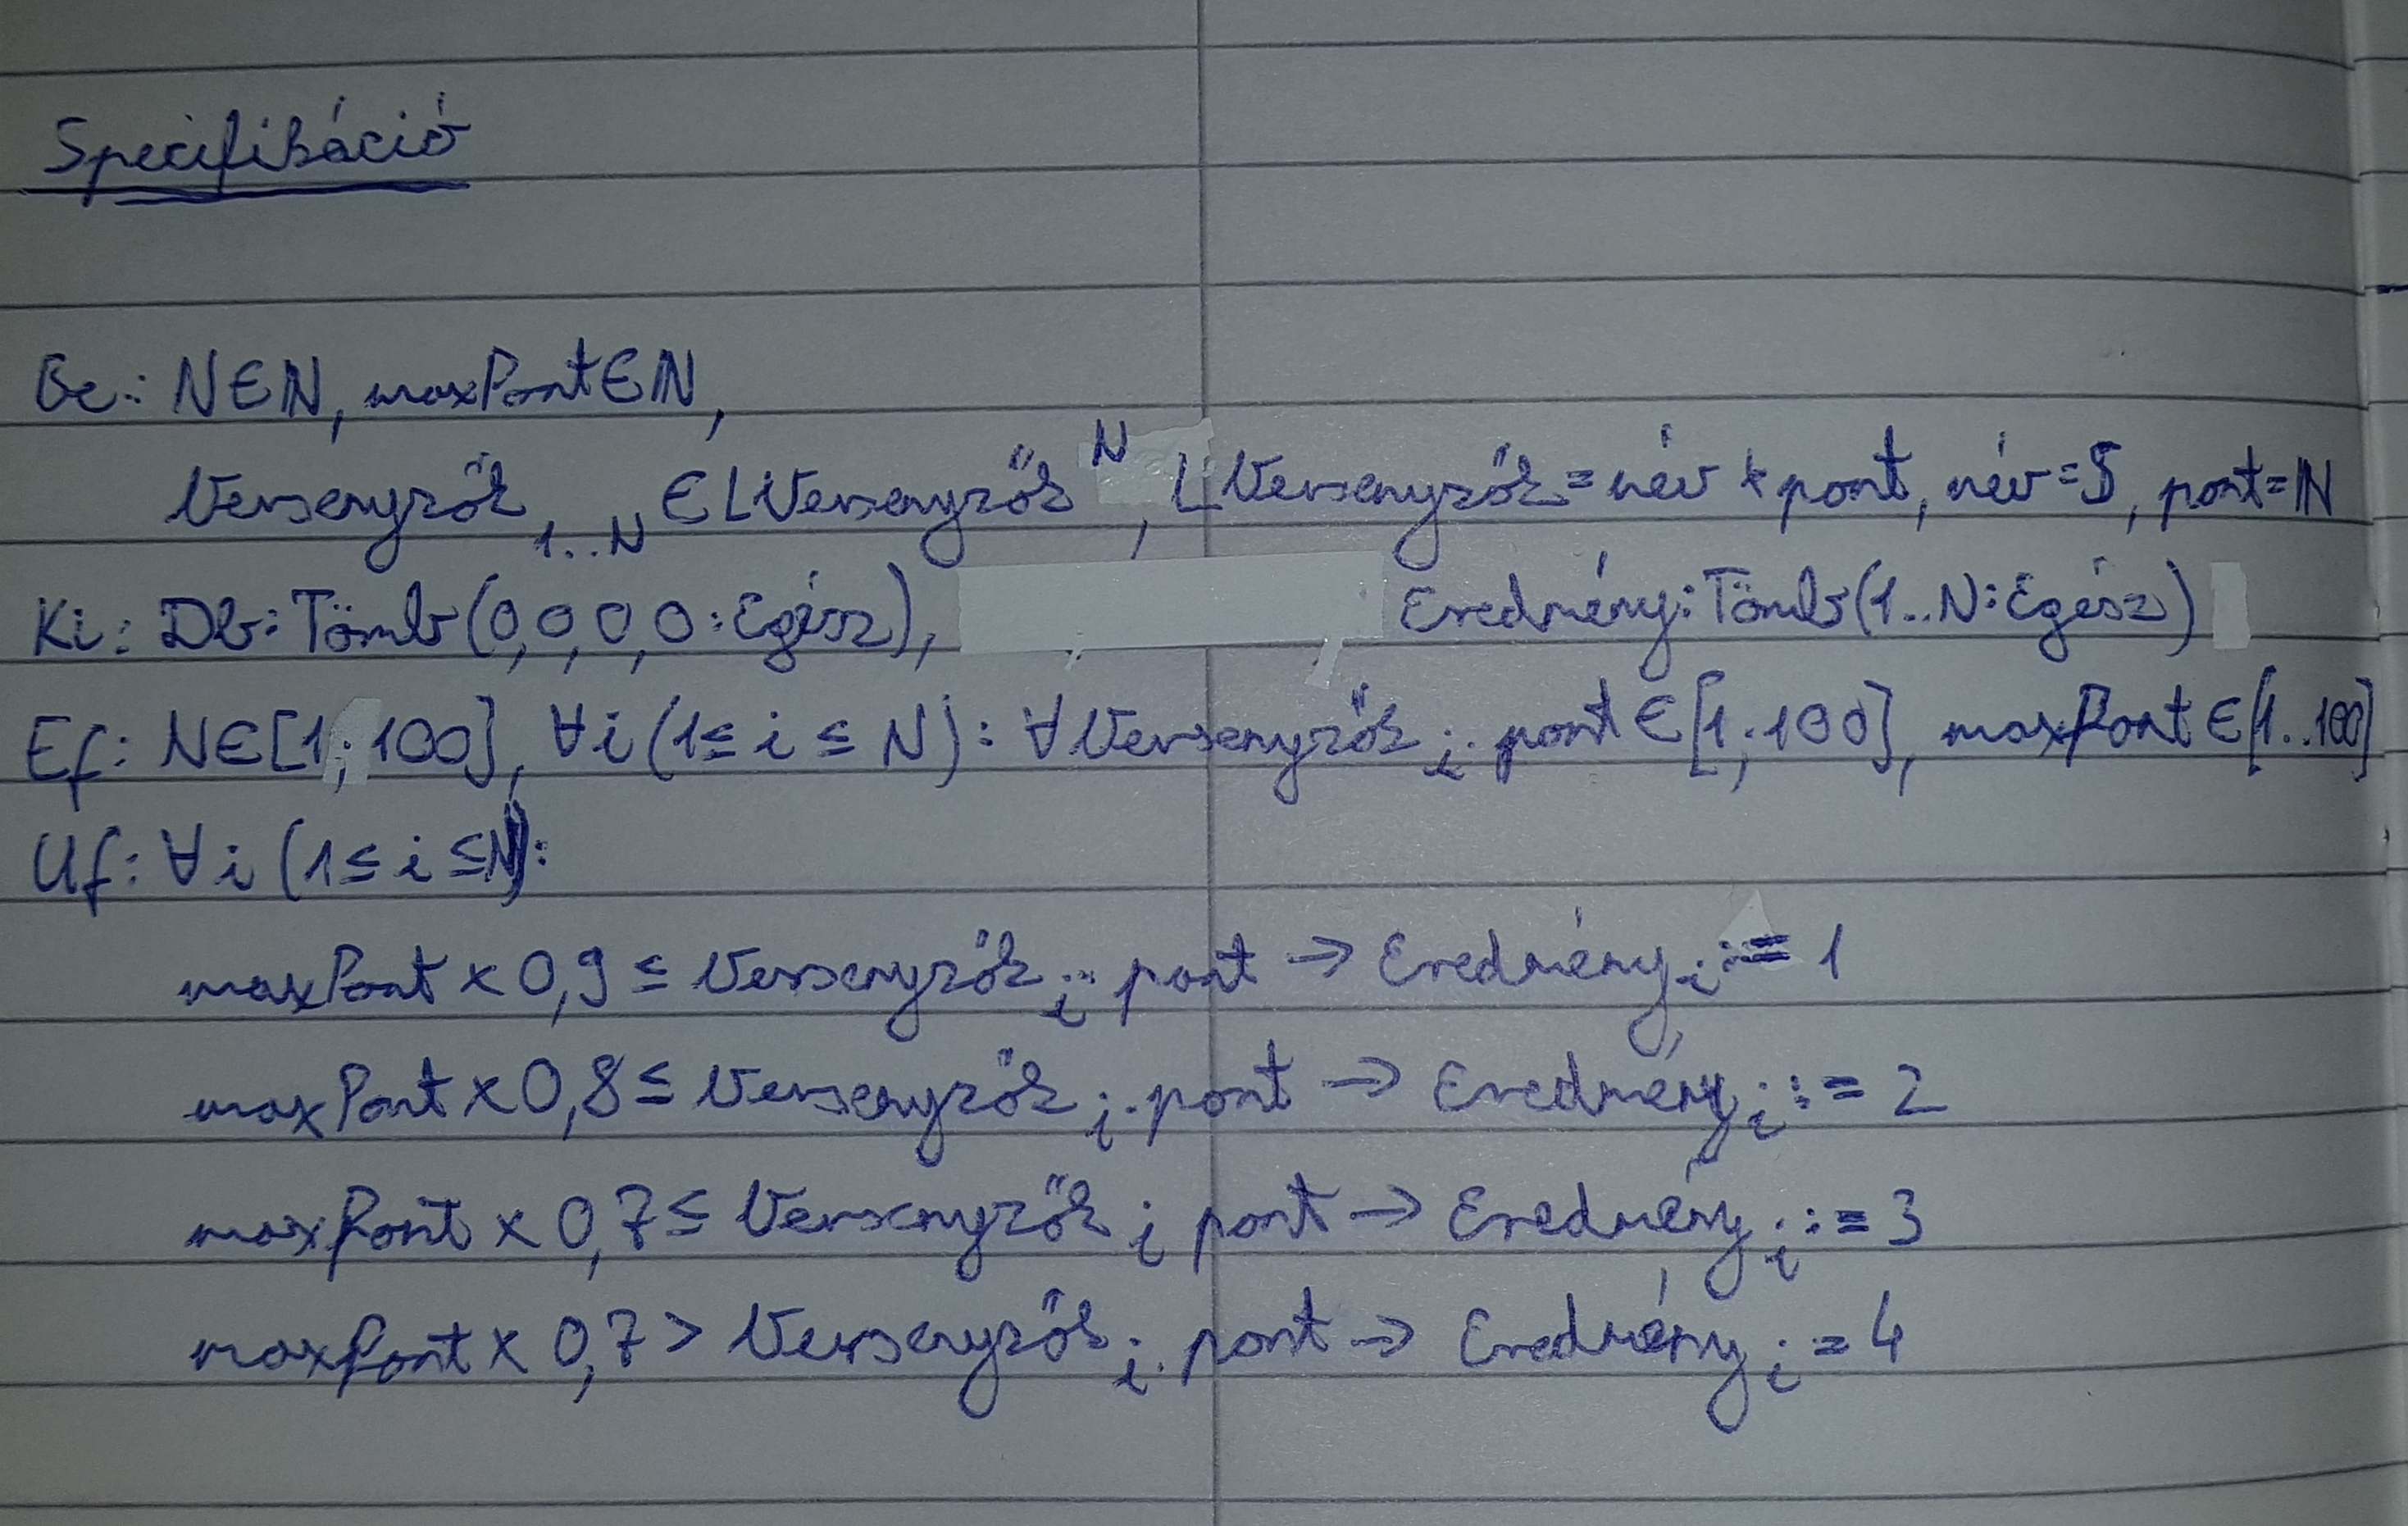 Specifikáció
Be: N∈ℕ, maxPont∈ℕ,
Versenyzők₁..ₙ ∈ LVersenyzőkᴺ, LVersenyzők = név * pont, név=S, pont=ℕ
Ki: Db: Tömb(0,0,0,0:Egész), Eredmény: Tömb(1..N:Egész)
Ef: N∈[1;100], ∀i(1≤i≤N): ∀Versenyzőkᵢ.pont∈[1;100], maxPont∈[1..100]
Uf: ∀i(1≤i≤N):
maxPont x 0,9 ≤ Versenyzőkᵢ.pont -> Eredményᵢ:=1
maxPont x 0,8 ≤ Versenyzőkᵢ.pont -> Eredményᵢ:=2
maxPont x 0,7 ≤ Versenyzőkᵢ pont -> Eredményᵢ:=3
maxPont x 0,7 > Versenyzőkᵢ.pont -> Eredményᵢ:=4